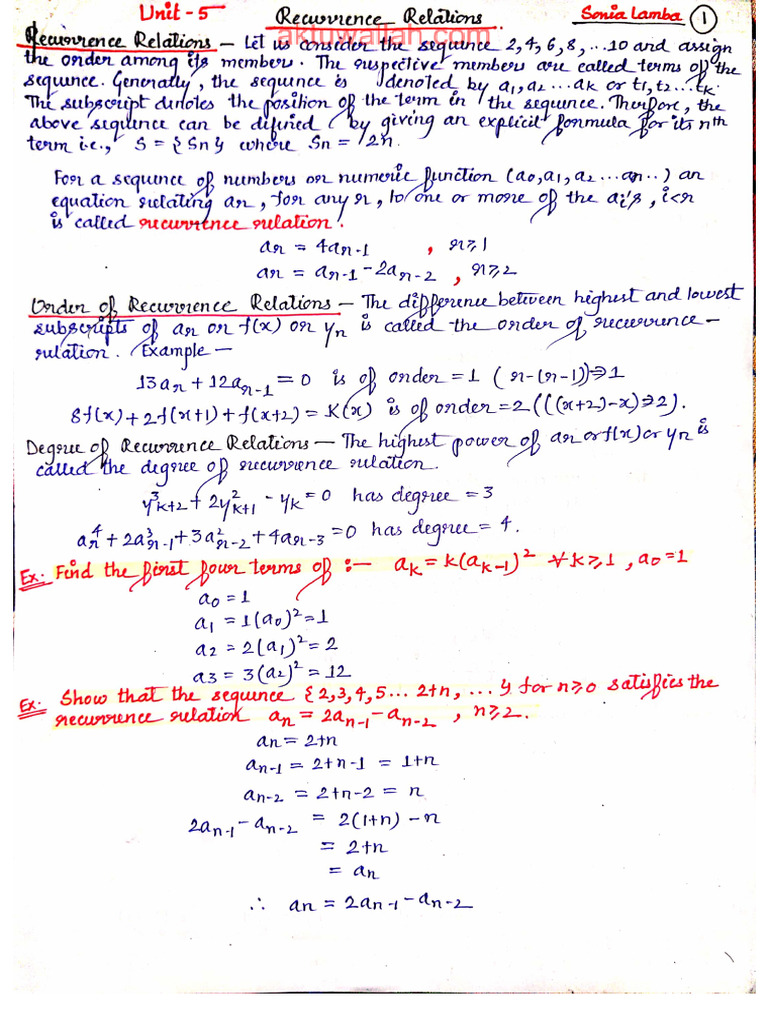 Unit - 5 Recurrence Relations Sonia Lamba 1
aktuwallah.com
Recurrence Relations – Let us consider the sequence 2, 4, 6, 8, ...10 and assign
the order among its members. The respective members are called terms of the
sequence. Generally, the sequence is denoted by a1, a2 ... ak or t1, t2 ... tk.
The subscript denotes the position of the term in the sequence. Therefore, the
above sequence can be defined by giving an explicit formula for its nth
term i.e., S = {Sn} where Sn = 2n.
For a sequence of numbers or numeric function (a0, a1, a2 ... an..) an
equation relating ar, for any r, to one or more of the ai's, i<r
is called recurrence relation.
ar = 4ar-1 , r≥1
ar = ar-1 - 2ar-2 , r≥2
Order of Recurrence Relations – The difference between highest and lowest
subscripts of ar or f(x) or yn is called the order of recurrence –
relation. Example –
13ar + 12ar-1 = 0 is of order = 1 (r-(r-1))⇒1
8f(x) + 2f(x+1) + f(x+2) = K(x) is of order = 2 (((x+2)-x)⇒2).
Degree of Recurrence Relations – The highest power of ar or f(x) or yn is
called the degree of recurrence relation.
y³k+2 + 2y²k+1 - yk = 0 has degree = 3
ar⁴ + 2a³r-1 + 3a²r-2 + 4ar-3 = 0 has degree = 4.
Ex: Find the first four terms of :– ak = k(ak-1)² ∀k≥1, a0=1
a0 = 1
a1 = 1(a0)² = 1
a2 = 2(a1)² = 2
a3 = 3(a2)² = 12
Ex: Show that the sequence {2,3,4,5... 2+n, ...} for n≥0 satisfies the
recurrence relation an = 2an-1 - an-2 , n≥2.
an = 2+n
an-1 = 2+n-1 = 1+n
an-2 = 2+n-2 = n
2an-1 - an-2 = 2(1+n) - n
= 2+n
= an
∴ an = 2an-1 - an-2